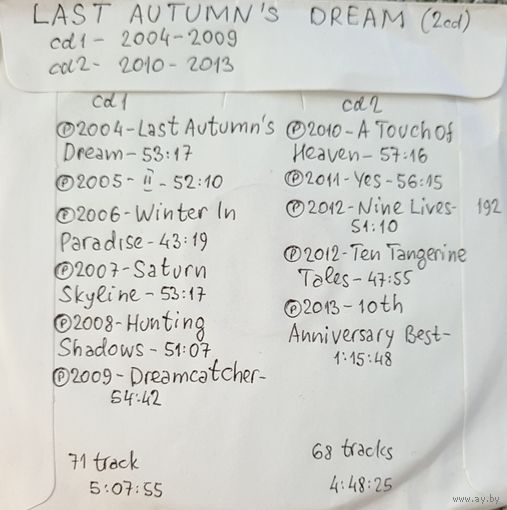 LAST AUTUMN'S DREAM (2cd)
cd1 - 2004-2009
cd2 - 2010-2013
cd1
Ⓟ2004-Last Autumn's
Dream-53:17
Ⓟ2005-II-52:10
Ⓟ2006-Winter In
Paradise-43:19
Ⓟ2007-Saturn
Skyline-53:17
Ⓟ2008-Hunting
Shadows-51:07
Ⓟ2009-Dreamcatcher-
54:42
71 track
5:07:55
cd2
Ⓟ2010-A Touch Of
Heaven-57:16
Ⓟ2011-Yes-56:15
Ⓟ2012-Nine Lives-
51:10
192
Ⓟ2012-Ten Tangerine
Tales-47:55
Ⓟ2013-10th
Anniversary Best-
1:15:48
68 tracks
4:48:25
www.ay.by